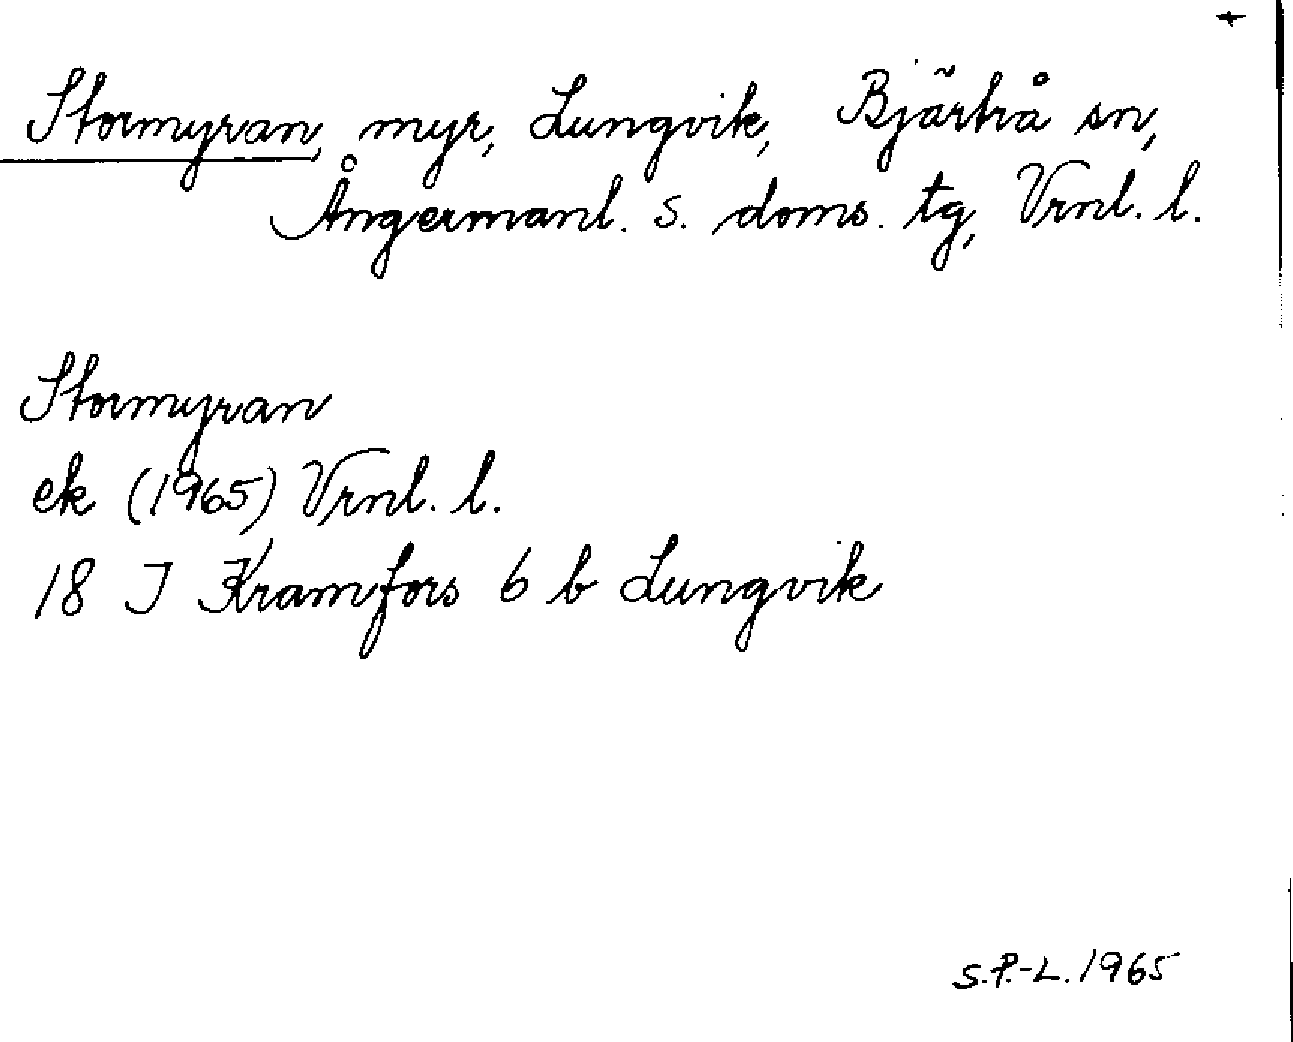 Stormyran, myr, Lungvik, Bjärtrå sn,
Ångermanl. s. doms. tg, Vrnl. l.
Stormyran
ek (1965) Vrnl. l.
18 I Kramfors 6 b Lungvik
S.P.-L. 1965